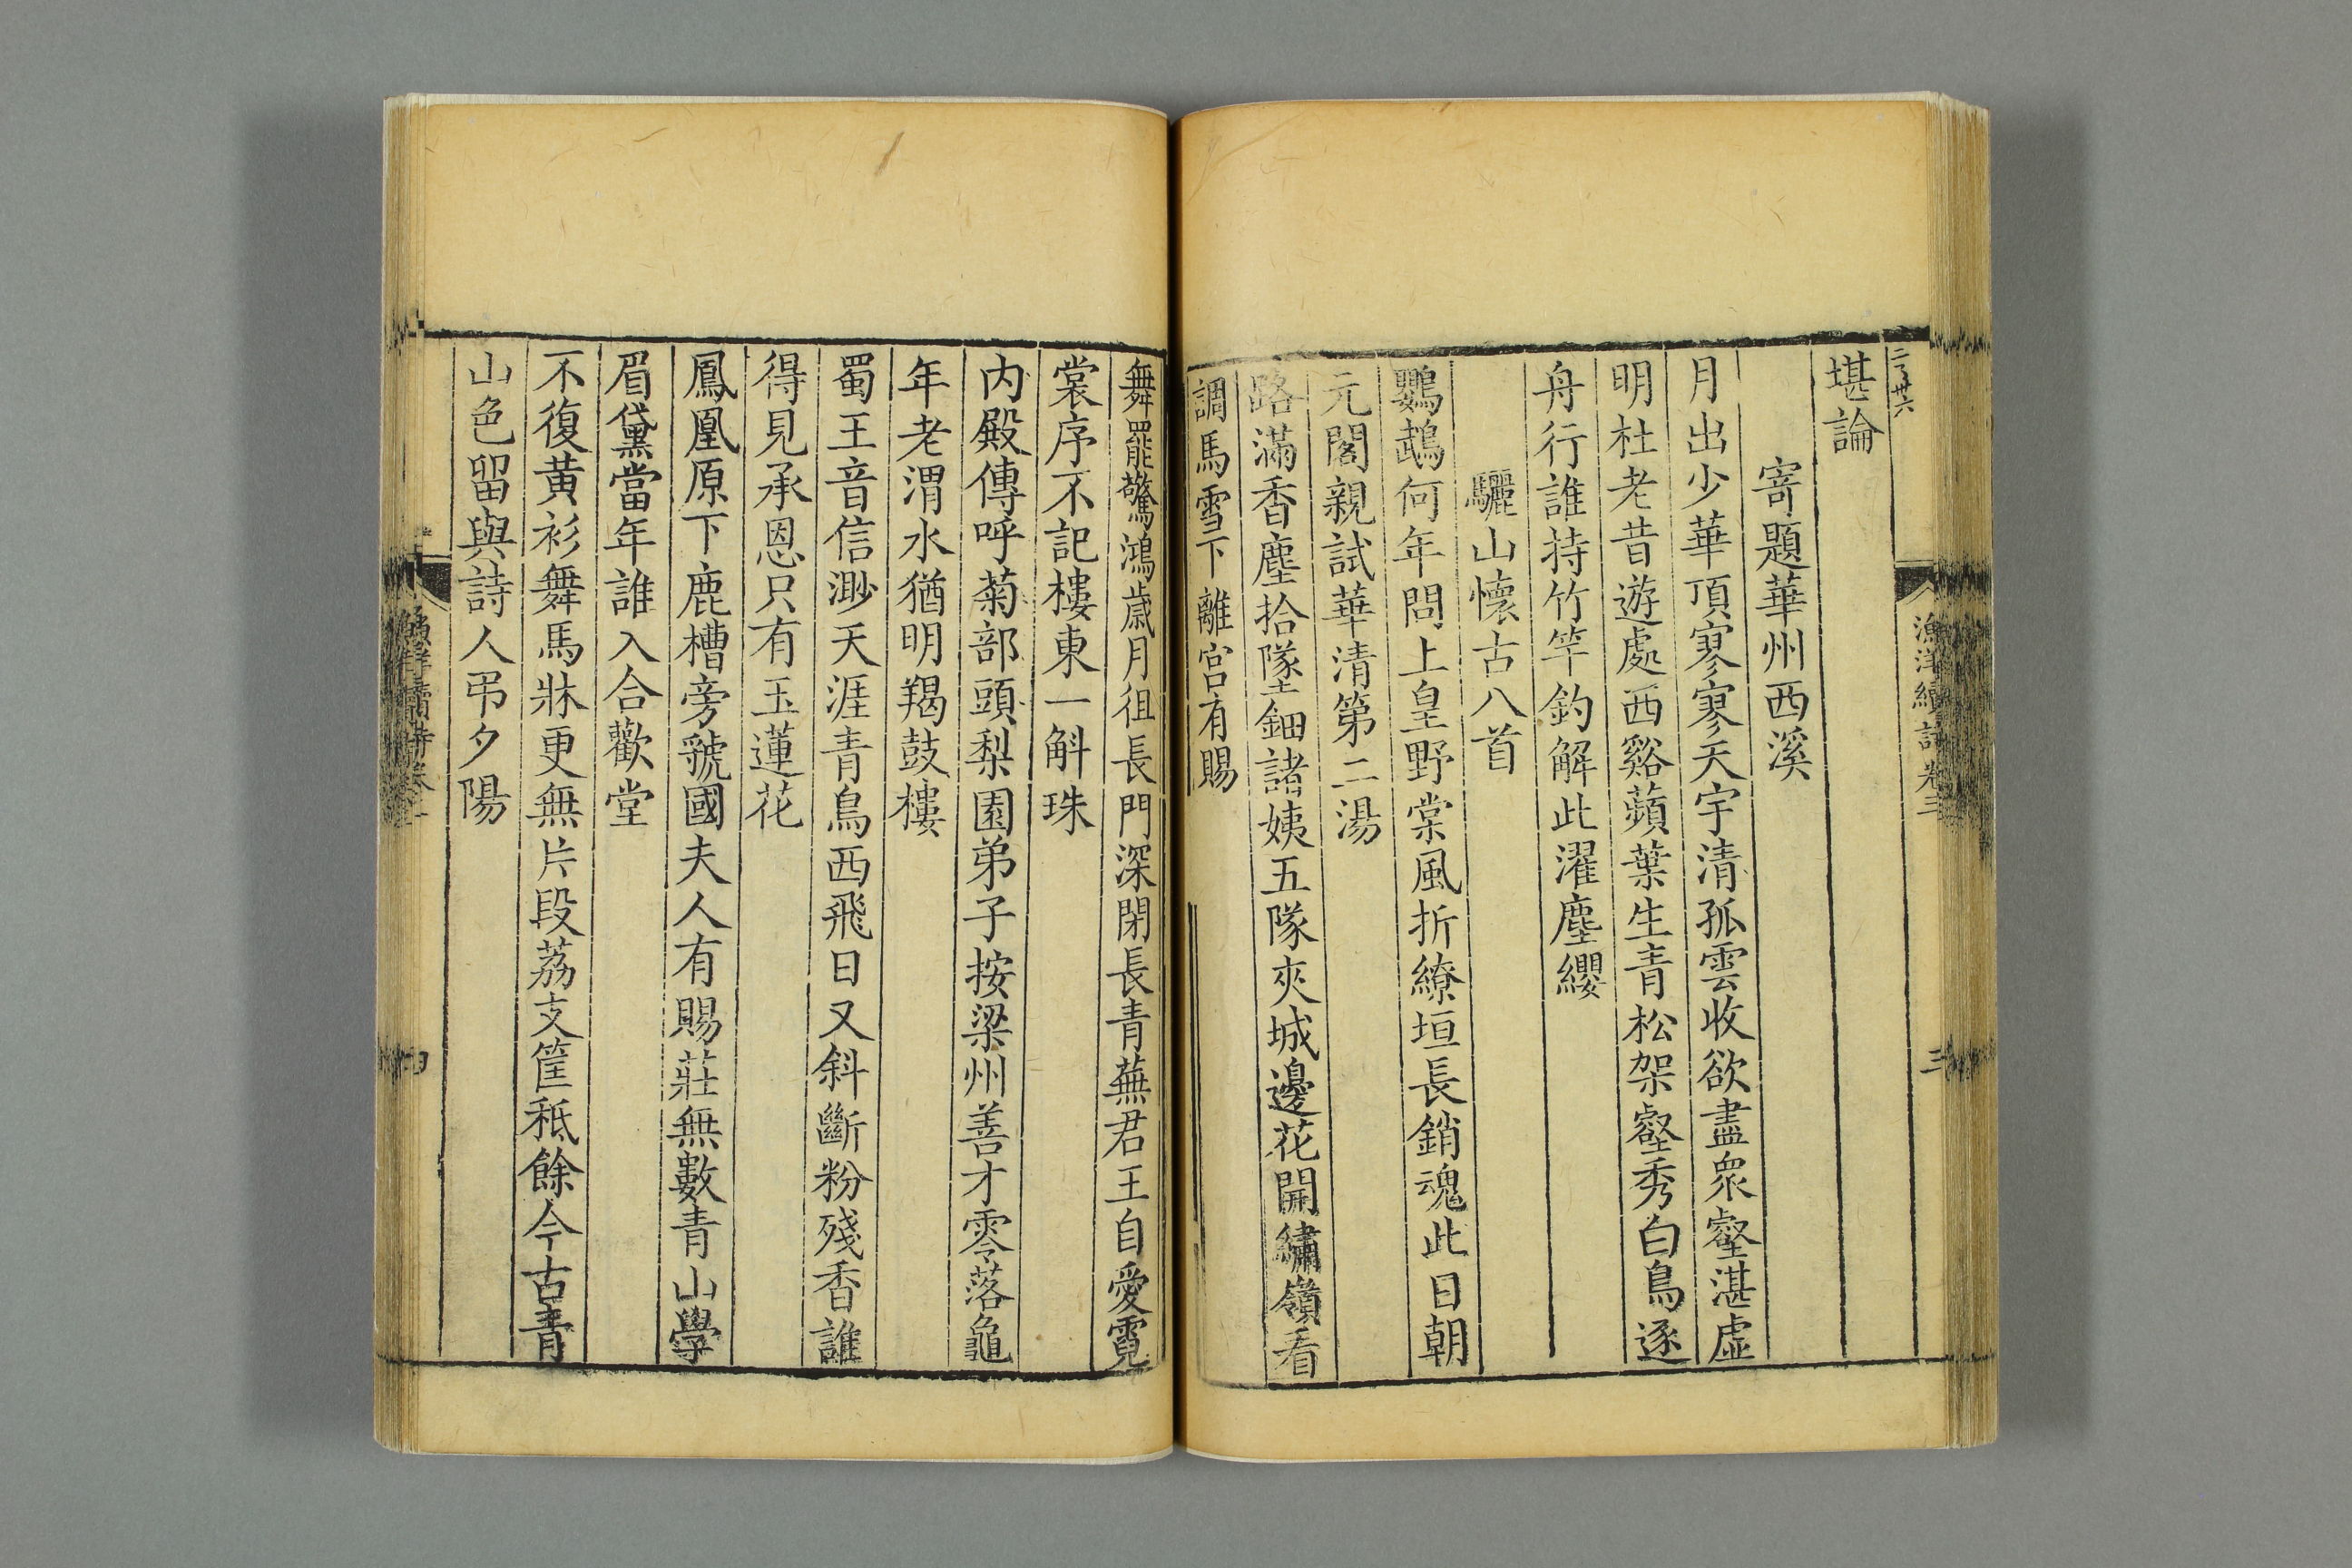 二千卅六
漁洋續詩卷三
三
堪論
寄題華州西溪
月出少華頂寥寥天宇清孤雲收欲盡眾壑湛虛
明杜老昔遊處西谿蘋葉生青松架壑秀白鳥逐
舟行誰持竹竿釣解此濯塵纓
驪山懷古八首
鸚鵡何年問上皇野棠風折繚垣長銷魂此日朝
元閣親試華清第二湯
路滿香塵拾墜鈿諸姨五隊夾城邊花開繡嶺看
調馬雪下離宮有賜
舞罷驚鴻歲月徂長門深閉長青蕪君王自愛霓
裳序不記樓東一斛珠
內殿傳呼菊部頭梨園弟子按梁州善才零落龜
年老渭水猶明羯鼓樓
蜀王音信渺天涯青鳥西飛日又斜斷粉殘香誰
得見承恩只有玉蓮花
鳳凰原下鹿槽旁虢國夫人有賜莊無數青山學
眉黛當年誰入合歡堂
不復黃衫舞馬牀更無片段荔支筐秪餘今古青
山色留與詩人弔夕陽
漁洋續詩卷三
四